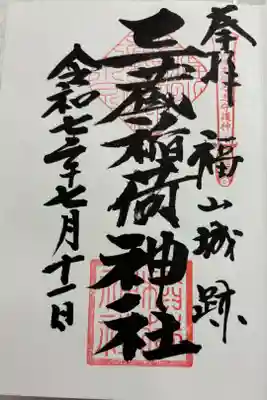 奉拝 福山城跡
三蔵稲荷神社
令和七年七月十一日